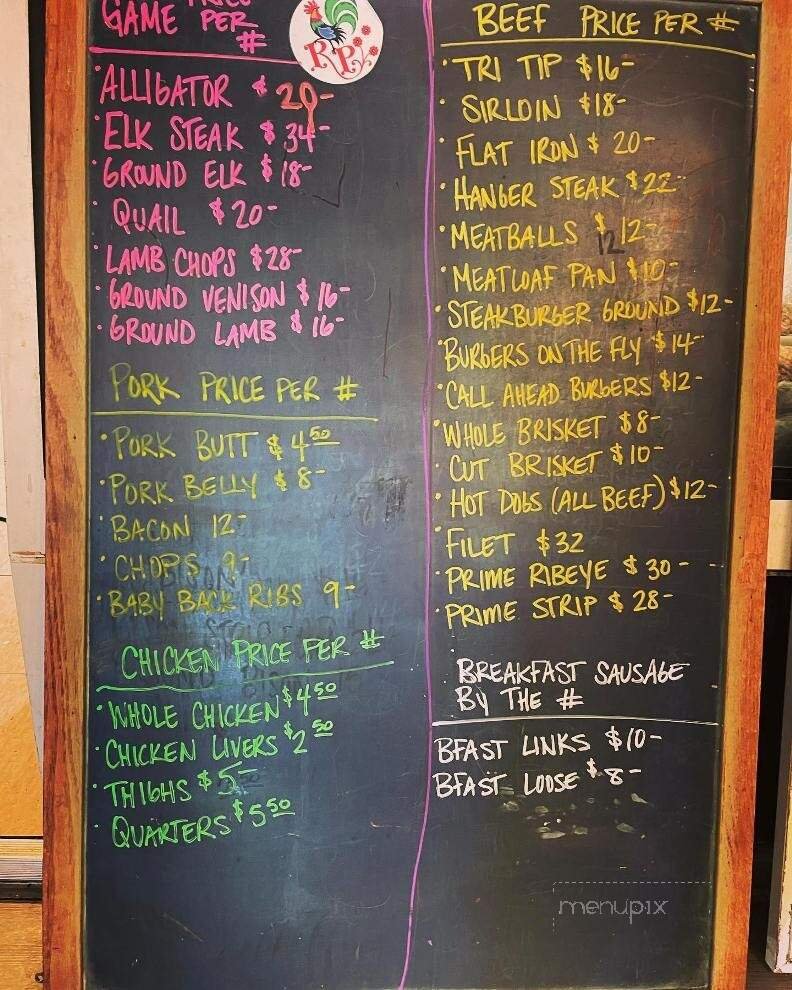 PRICE
GAME PER
#
RP
ALLIGATOR $ 20-
ELK STEAK $ 34-
GROUND ELK $ 18-
QUAIL $ 20-
LAMB CHOPS $28-
GROUND VENISON $ 16-
GROUND LAMB $ 16-
PORK PRICE PER #
PORK BUTT $ 4 50
PORK BELLY $ 8-
BACON 12-
CHOPS 9-
BABY BACK RIBS 9-
CHICKEN PRICE PER #
WHOLE CHICKEN $4 50
CHICKEN LIVERS $2 50
THIGHS $5-
QUARTERS $5 50
BEEF PRICE PER #
TRI TIP $16-
SIRLOIN $18-
FLAT IRON $ 20-
HANGER STEAK $22-
MEATBALLS $ 12-
MEATLOAF PAN $10-
STEAKBURGER GROUND $12-
BURGERS ON THE FLY $14-
CALL AHEAD BURGERS $12-
WHOLE BRISKET $8-
CUT BRISKET $10-
HOT DOGS (ALL BEEF) $12-
FILET $32
PRIME RIBEYE $30-
PRIME STRIP $28-
BREAKFAST SAUSAGE
BY THE #
BFAST LINKS $10-
BFAST LOOSE $8-
menupix